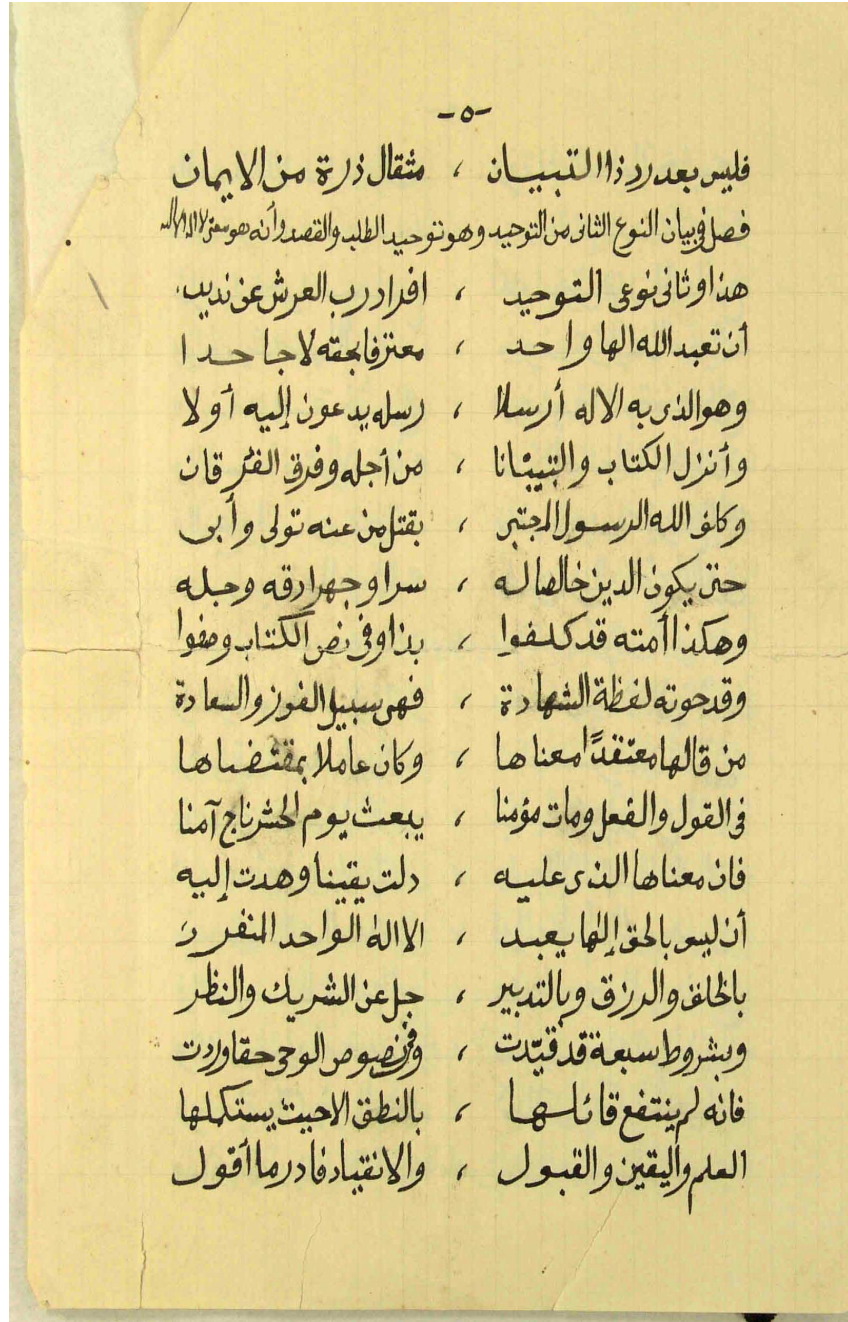 -٥-
فليس بعد رد ذا التبيـــان ، مثقال ذرة من الايمان
فصل في بيان النوع الثانى من التوحيد وهو توحيد الطلب والقصد وأنه هو معنى لا اله الا الله
هذا وثانى نوعى التوحيد ، افراد رب العرش عن نديد.
أن تعبد الله الها واحد ، معترفا بحقه لا جاحدا
وهو الذى به الاله أرسلا ، رسله يدعون إليه أولا
وأنزل الكتاب والتبيانا ، من أجله وفرق الفرقان
وكلف الله الرسول المجتبى ، بقتل من عنه تولى وأبى
حتى يكون الدين خالصا له ، سرا وجهرا دقه وجله
وهكذا أمته قد كلفوا ، بذا وفى نص الكتاب وصفوا
وقد حوته لفظة الشهادة ، فهى سبيل الفوز والسعادة
من قالها معتقدًا معناها ، وكان عاملا بمقتضاها
فى القول والفعل ومات مؤمنا ، يبعث يوم الحشر ناج آمنا
فان معناها الذى عليه ، دلت يقينا وهدت إليه
أن ليس بالحق إلها يعبد ، الا اله الواحد المنفرد
بالخلق والرزق وبالتدبير ، جل عن الشريك والنظر
وبشروط سبعة قد قيّدت ، وفى نصوص الوحى حقا وردت
فانه لم ينتفع قائلها ، بالنطق الا حيث يستكملها
العلم واليقين والقبول ، والانقياد فادر ما أقول